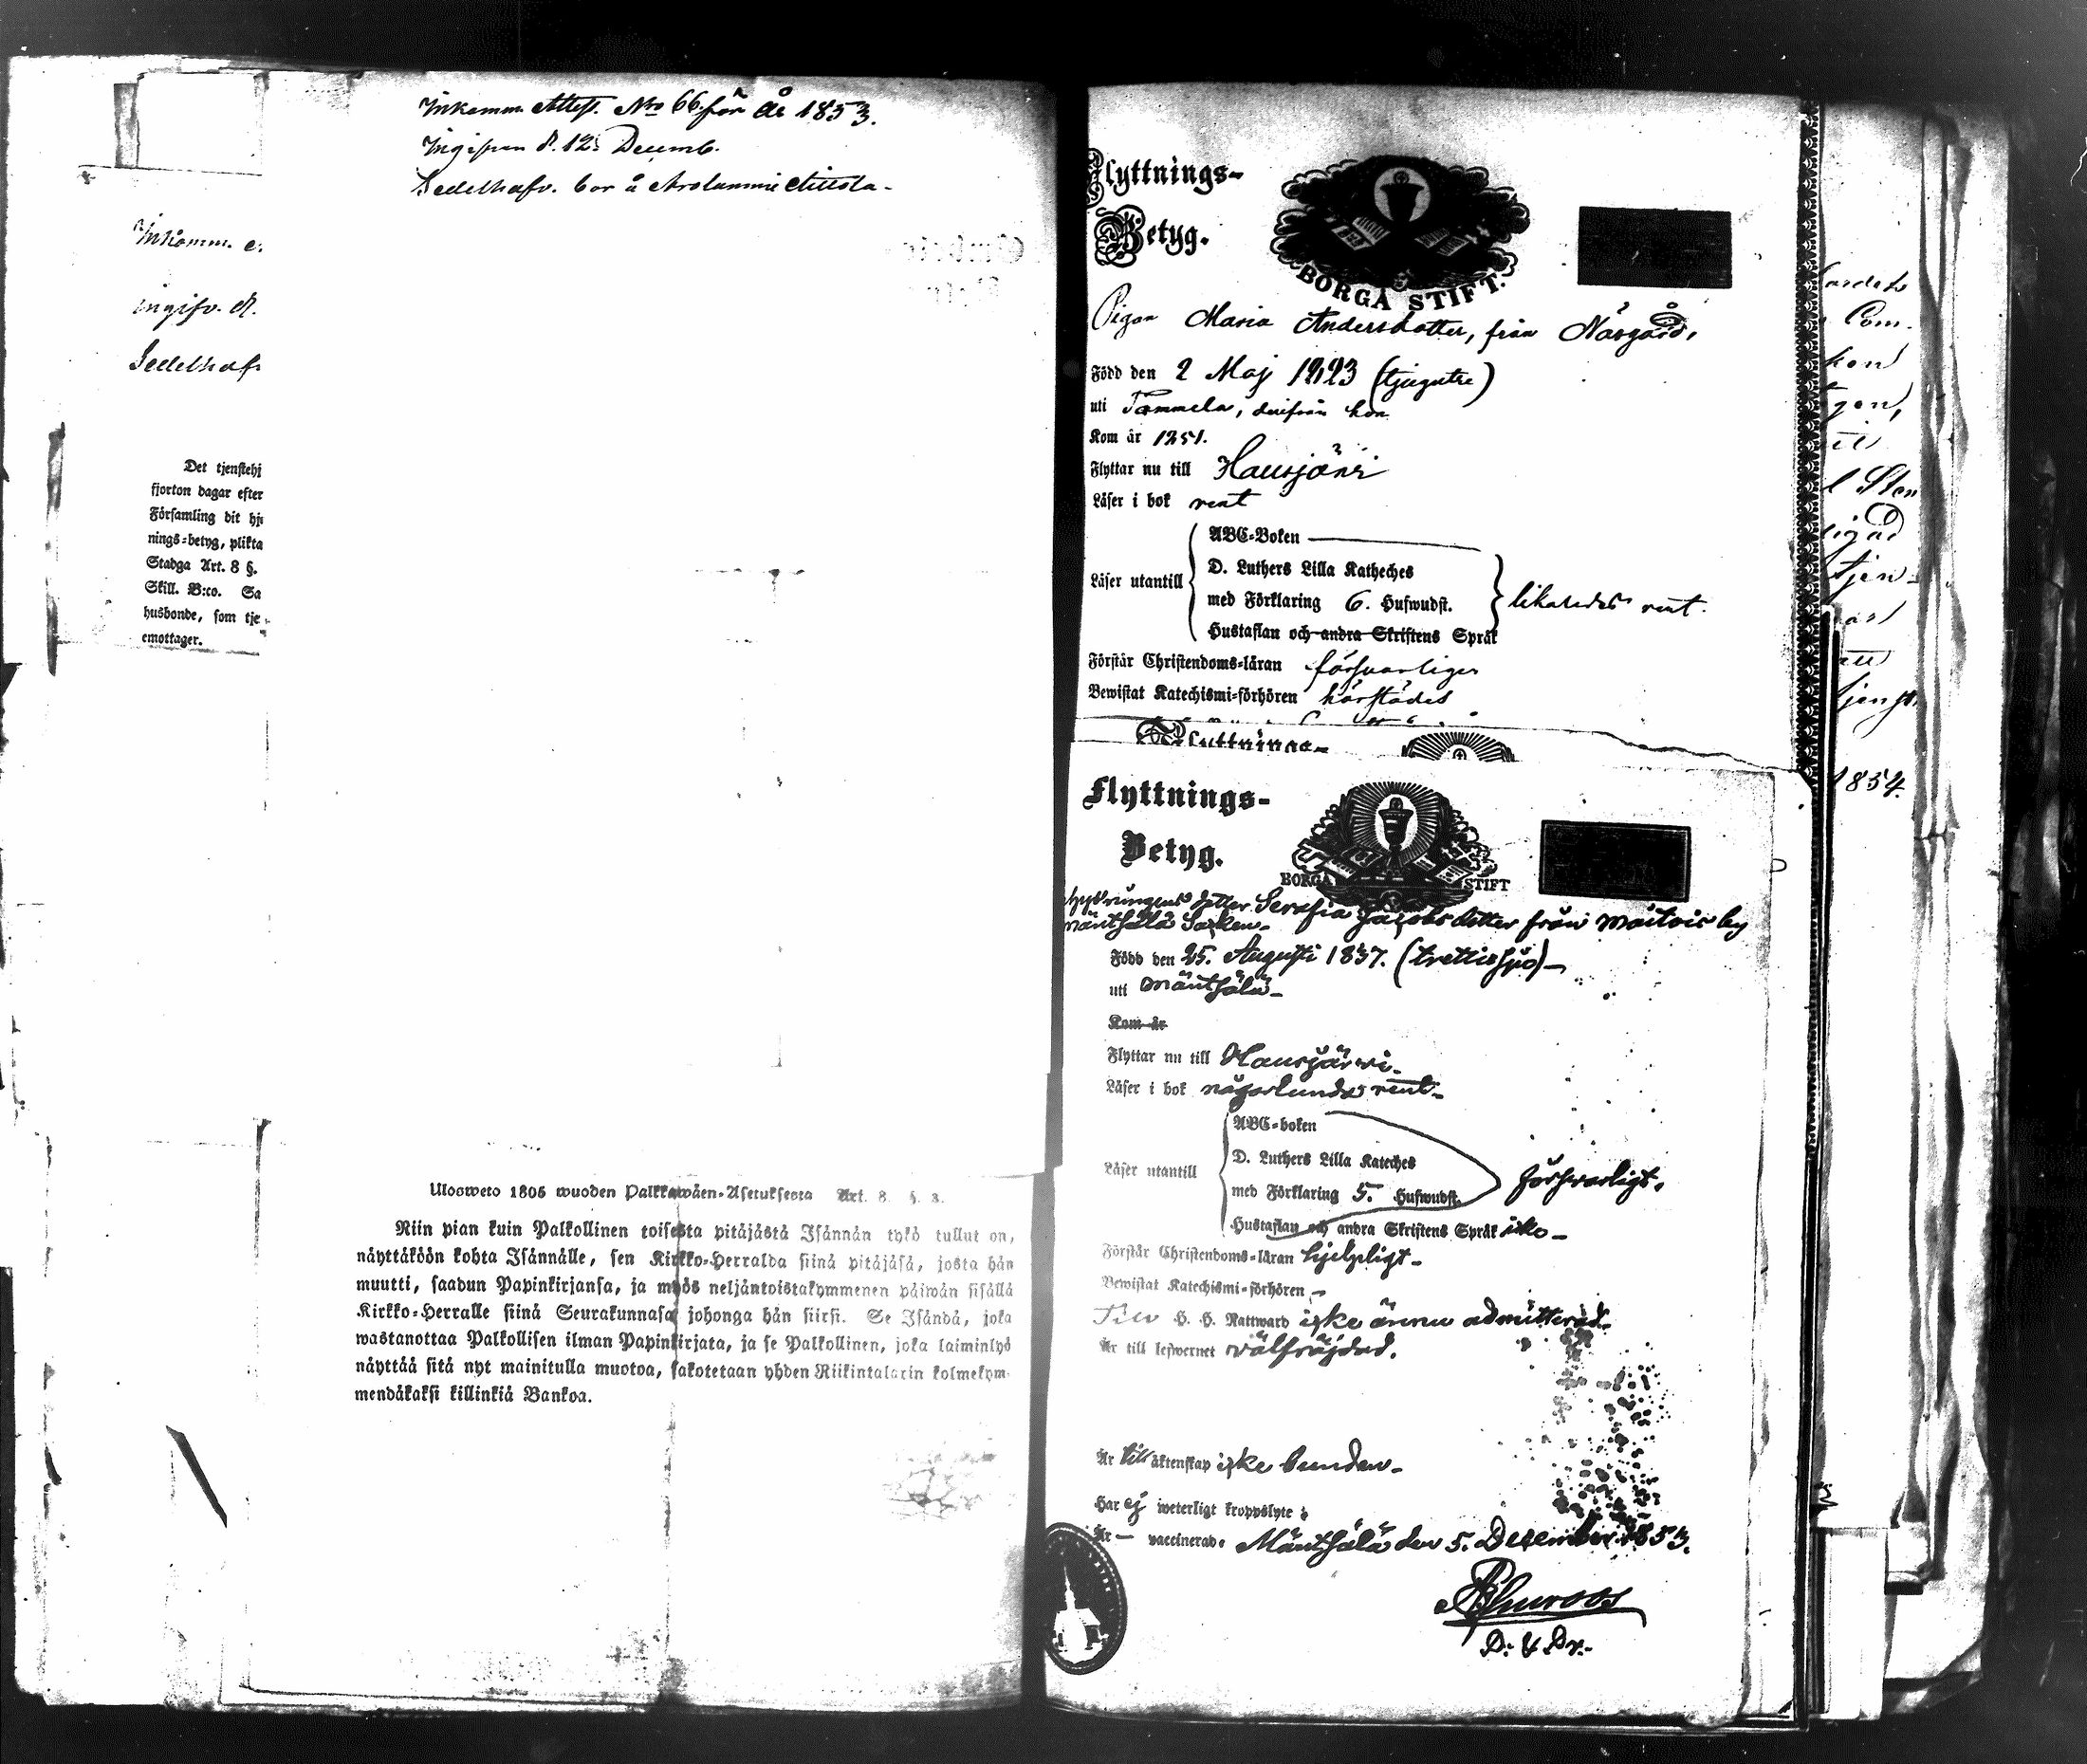 Inkomm. Attest. No 66 för år 1853.
Ingifven d. 12. Decemb.
Sedelhafv. bor å Arolammi
Inkomm.
ingifv. d.
Sedelhaf
Det tjenstehj
fjorton dagar efter
Församling dit hj
nings-betyg, plikta
Stadga Art. 8 §.
Skill. B:co. Sa
husbonde, som tje
emottager.
Ulosweto 1805 wuoden Palkkawåen-Asetuksesta Art. 8. §. 3.
Niin pian kuin Palkollinen toisesta pitåjåstå Isånnån tykö tullut on,
nåyttåköön kohta Isånnålle, sen Kirkko-Herralda siinå pitåjåså, josta hån
muutti, saadun Papinkirjansa, ja myös neljåntoistakymmenen påiwån sisållå
Kirkko-Herralle siinå Seurakunnasa johonga hån siirsi. Se Isåndå, joka
wastanottaa Palkollisen ilman Papinkirjata, ja se Palkollinen, joka laiminlyö
nåyttåå sitå nyt mainitulla muotoa, sakotetaan yhden Riikintalarin kolmekym-
mendåkaksi killinkiå Bankoa.
Flyttnings-
Betyg.
BORGÅ STIFT.
Pigan Maria Andersdotter, från Näsgård,
Född den 2 Maj 1823 (tjugutre)
uti Tammela, derifrån hon
Kom år 1851.
Flyttar nu till Hausjärvi
Läser i bok rent
ABC-Boken
D. Luthers Lilla Katheches
Läser utantill
med Förklaring 6. Hufwudst.
likaledes rent.
Hustaflan och andra Skriftens Språk
Förstår Christendoms-läran försvarligen
Bewistat Katechismi-förhören härstädes
Flyttnings-
Flyttnings-
Betyg.
BORGÅ STIFT
dotter Serafia Jacobsdotter från by
Mäntsälä Socken.
Född den 25. Augusti 1837. (trettiosju)
uti Mäntsälä
Kom år
Flyttar nu till Hausjärvi
Läser i bok någorlunda rent
ABC-boken
D. Luthers Lilla Kateches
Läser utantill
med Förklaring 5. Hufwudst.
försvarligt.
Hustaflan och andra Skriftens Språk icke
Förstår Christendoms-läran hjelpligt
Bewistat Katechismi-förhören
Till H. H. Nattward icke ännu admitterad.
Är till lefwernet välfräjdad.
Är till äktenskap icke bunden
Har ej weterligt kroppslyte
Är — vaccinerad. Mäntsälä den 5. December 1853.
1854.